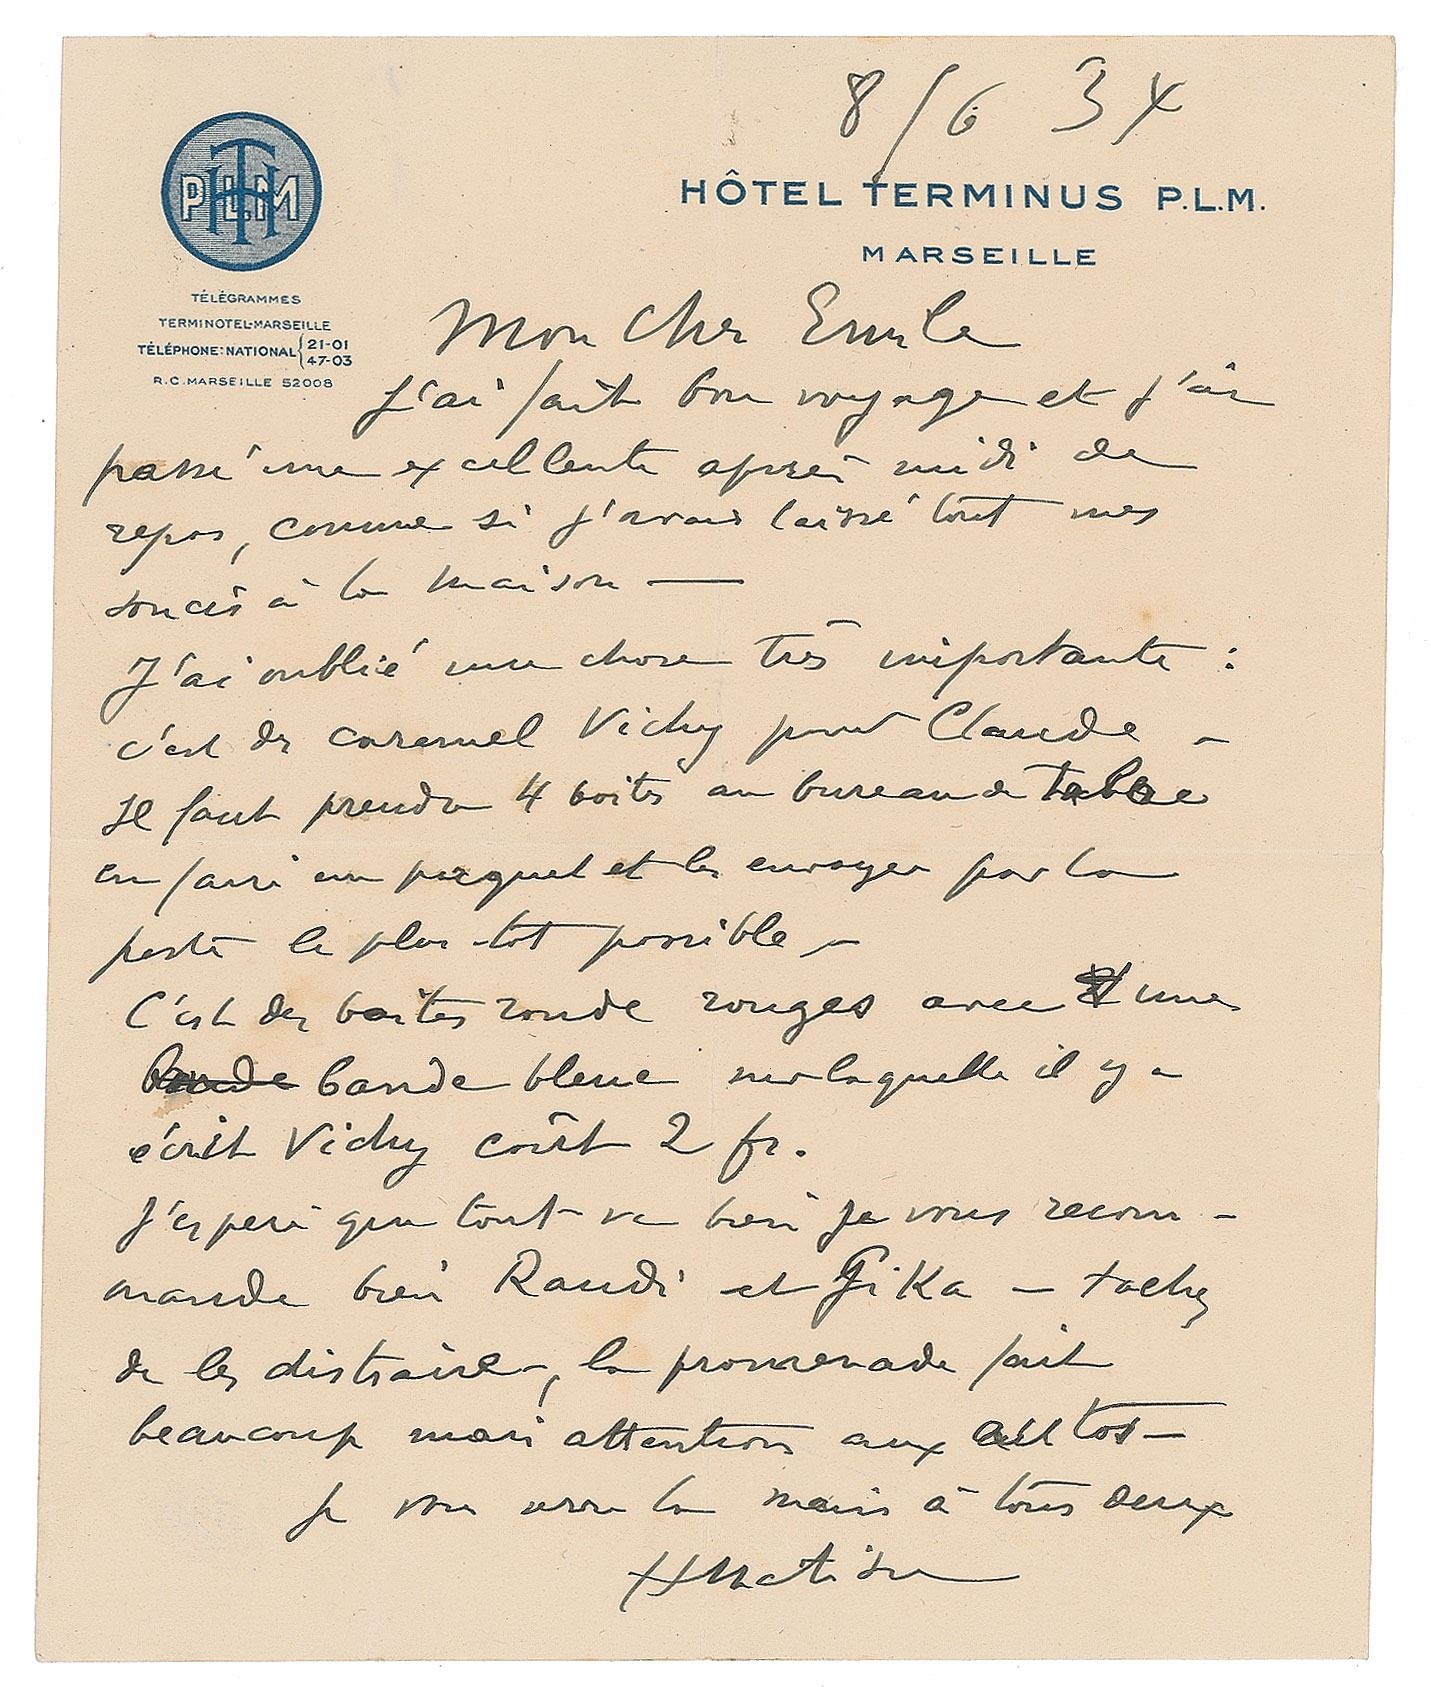 8/6 34
THPLM
HÔTEL TERMINUS P.L.M.
MARSEILLE
TÉLÉGRAMMES
TERMINOTEL-MARSEILLE
TÉLÉPHONE: NATIONAL { 21-01
47-03
R.C. MARSEILLE 52008
Mon cher Emile
J'ai fait bon voyage et j'ai
passé une excellente après midi de
repos, comme si j'avais laissé tout mes
soucis à la maison —
J'ai oublié une chose très importante :
c'est des caramel Vichy pour Claude -
Il faut prendre 4 boites au bureau de Tabac
en faire un paquet et les envoyer par la
poste le plus tôt possible -
C'est des boites ronde rouges avec une
bande bleue sur laquelle il y a
écrit Vichy coût 2 fr.
J'espère que tout va bien je vous recom-
mande bien Raudi et Gika — tachez
de les distraire, la promenade fait
beaucoup mais attention aux autos —
Je vous serre la main à tous deux
HMatisse